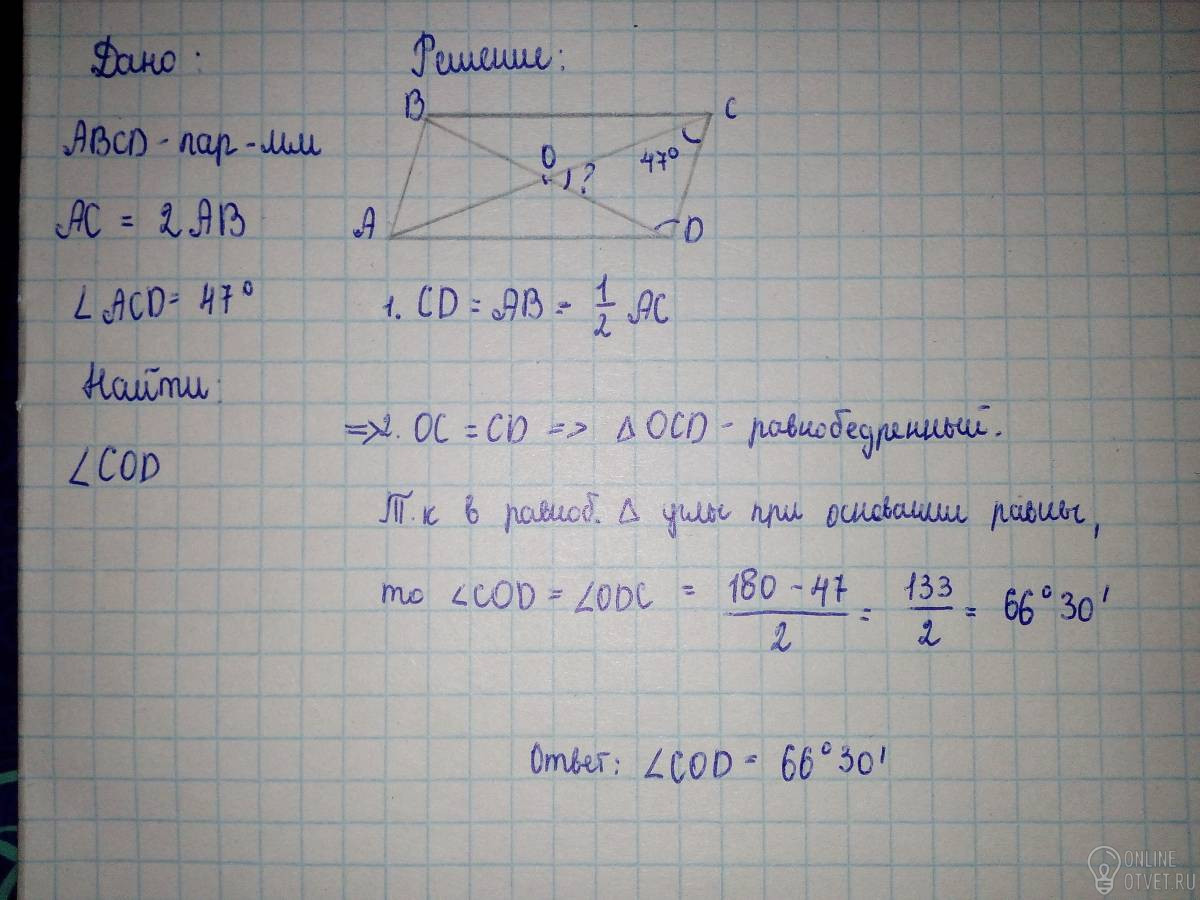 Дано:
ABCD - пар-мм
AC = 2AB
∠ACD = 47°
Найти:
∠COD
Решение:
B
C
O
?
47°
A
D
1. CD = AB = 1/2 AC
=> 2. OC = CD => △OCD - равнобедренный.
Т.к в равноб. △ углы при основании равны,
то ∠COD = ∠ODC = (180 - 47)/2 = 133/2 = 66°30'
Ответ: ∠COD = 66°30'
ONLINE
OTVET.RU